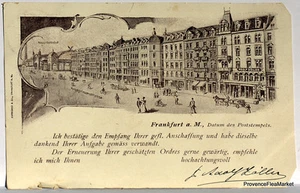 Frankfurt a. M., Datum des Poststempels.
Ich bestätige den Empfang Ihrer gefl. Anschaffung und habe dieselbe
dankend Ihrer Aufgabe gemäss verwandt.
Der Erneuerung Ihrer geschätzten Ordres gerne gewärtig, empfehle
ich mich Ihnen hochachtungsvoll
Adolf
ProvenceFilesMarket